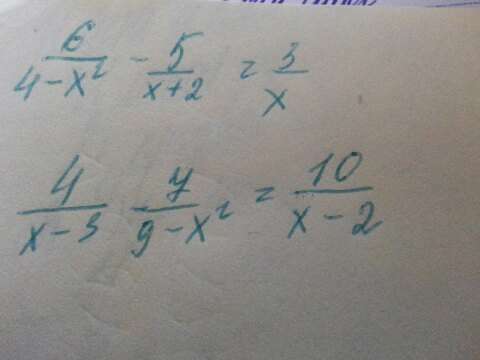 6/(4-x²) - 5/(x+2) = 3/x
4/(x-3) - y/(9-x²) = 10/(x-2)